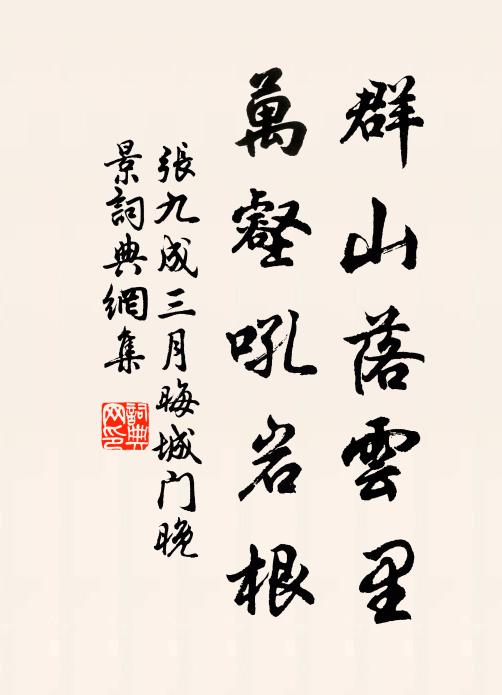 群山落雲里
萬壑吼岩根
張九成三月晦城门晚
景詞典網集
詞典
网印